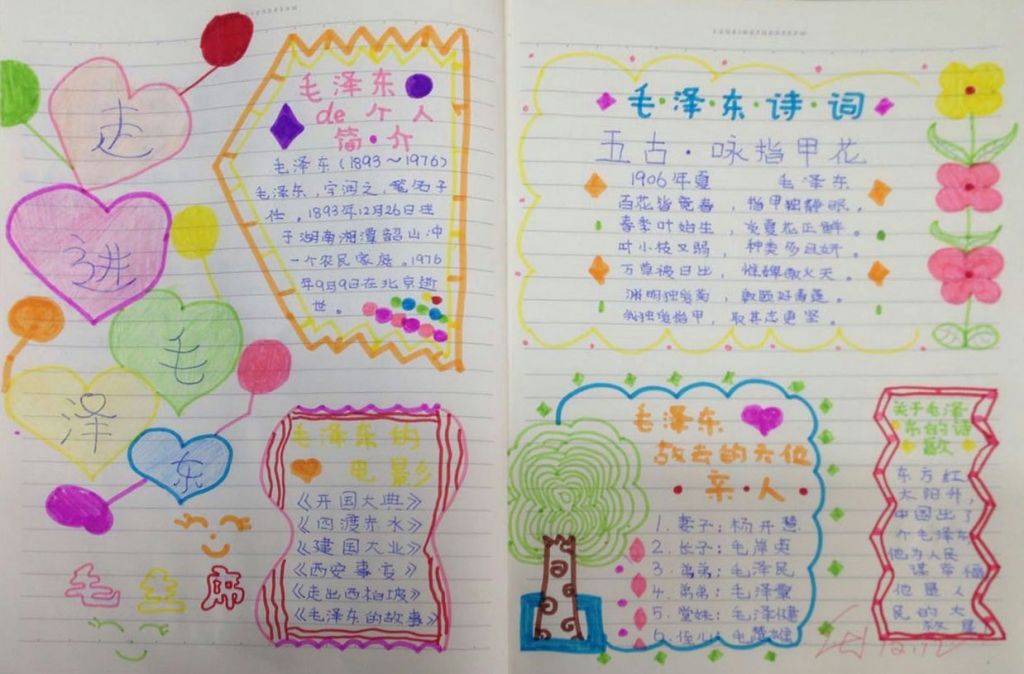 走
进
毛
泽
东
毛泽东
de个人
简·介
毛泽东(1893～1976)
毛泽东,字润之,笔名子
任。1893年12月26日生
于湖南湘潭韶山冲
一个农民家庭。1976
年9月9日在北京逝
世。
毛泽东的
电影
《开国大典》
《四渡赤水》
《建国大业》
《西安事变》
《走出西柏坡》
《毛泽东的故事》
毛·泽·东·诗·词
五古·咏指甲花
1906年夏 毛泽东
百花皆竞春,指甲独静眠。
春季叶始生,炎夏花正鲜。
叶小枝又弱,种类多且妍。
万草被日出,惟婢傲火天。
渊明独爱菊,敦颐好青莲。
我独爱指甲,取其志更坚。
毛泽东
故去的六位
亲·人
1.妻子:杨开慧
2.长子:毛岸英
3.弟弟:毛泽民
4.弟弟:毛泽覃
5.堂妹:毛泽健
6.侄儿:毛楚雄
关于毛泽
东的诗
歌
东方红
太阳升,
中国出了
个毛泽东
他为人民
谋幸福
他是人
民的大
救星